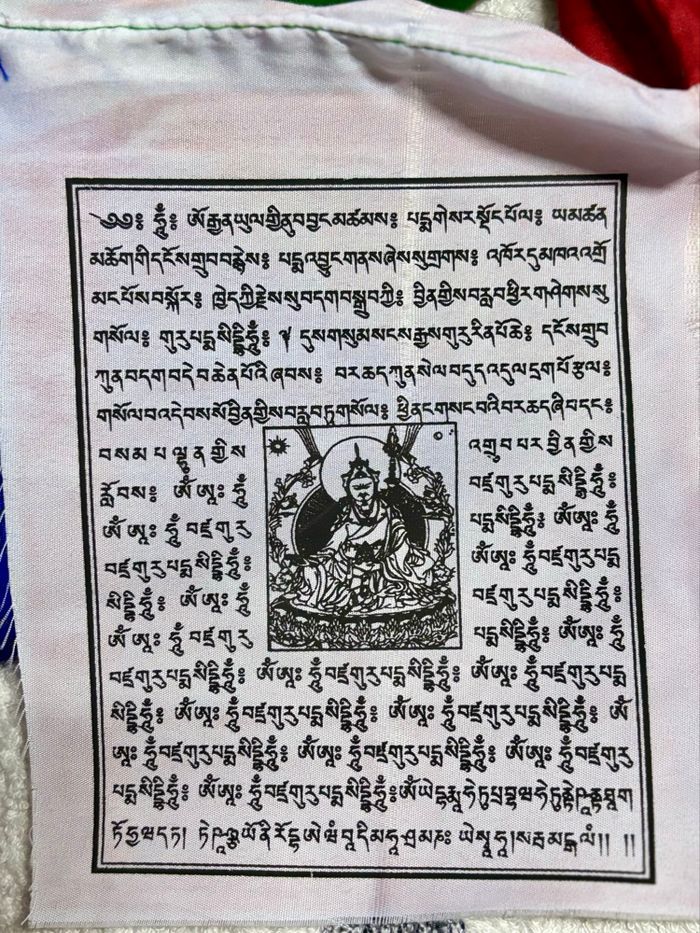 ༄༅༔ ཧཱུྃ༔ ཨོ་རྒྱན་ཡུལ་གྱི་ནུབ་བྱང་མཚམས༔ པདྨ་གེ་སར་སྡོང་པོ་ལ༔ ཡ་མཚན
མཆོག་གི་དངོས་གྲུབ་བརྙེས༔ པདྨ་འབྱུང་གནས་ཞེས་སུ་གྲགས༔ འཁོར་དུ་མཁའ་འགྲོ
མང་པོས་བསྐོར༔ ཁྱེད་ཀྱི་རྗེས་སུ་བདག་སྒྲུབ་ཀྱི༔ བྱིན་གྱིས་བརླབ་ཕྱིར་གཤེགས་སུ
གསོལ༔ གུ་རུ་པདྨ་སིདྡྷི་ཧཱུྃ༔ ༈ དུས་གསུམ་སངས་རྒྱས་གུ་རུ་རིན་པོ་ཆེ༔ དངོས་གྲུབ
ཀུན་བདག་བདེ་བ་ཆེན་པོའི་ཞབས༔ བར་ཆད་ཀུན་སེལ་བདུད་འདུལ་དྲག་པོ་རྩལ༔
གསོལ་བ་འདེབས་སོ་བྱིན་གྱིས་བརླབ་ཏུ་གསོལ༔ ཕྱི་ནང་གསང་བའི་བར་ཆད་ཞི་བ་དང༔
བསམ་པ་ལྷུན་གྱིས འགྲུབ་པར་བྱིན་གྱིས
རློབས༔ ཨོཾ་ཨཱཿ ཧཱུྃ བཛྲ་གུ་རུ་པདྨ་སིདྡྷི་ཧཱུྃ༔
ཨོཾ་ཨཱཿ ཧཱུྃ་བཛྲ་གུ་རུ པདྨ་སིདྡྷི་ཧཱུྃ༔ ཨོཾ་ཨཱཿ ཧཱུྃ
བཛྲ་གུ་རུ་པདྨ་སིདྡྷི་ཧཱུྃ༔ ཨོཾ་ཨཱཿ ཧཱུྃ་བཛྲ་གུ་རུ་པདྨ
སིདྡྷི་ཧཱུྃ༔ ཨོཾ་ཨཱཿ ཧཱུྃ བཛྲ་གུ་རུ་པདྨ་སིདྡྷི་ཧཱུྃ༔
ཨོཾ་ཨཱཿ ཧཱུྃ་བཛྲ་གུ་རུ པདྨ་སིདྡྷི་ཧཱུྃ༔ ཨོཾ་ཨཱཿ ཧཱུྃ
བཛྲ་གུ་རུ་པདྨ་སིདྡྷི་ཧཱུྃ༔ ཨོཾ་ཨཱཿ ཧཱུྃ་བཛྲ་གུ་རུ་པདྨ་སིདྡྷི་ཧཱུྃ༔ ཨོཾ་ཨཱཿ ཧཱུྃ་བཛྲ་གུ་རུ་པདྨ
སིདྡྷི་ཧཱུྃ༔ ཨོཾ་ཨཱཿ ཧཱུྃ་བཛྲ་གུ་རུ་པདྨ་སིདྡྷི་ཧཱུྃ༔ ཨོཾ་ཨཱཿ ཧཱུྃ་བཛྲ་གུ་རུ་པདྨ་སིདྡྷི་ཧཱུྃ༔ ཨོཾ
ཨཱཿ ཧཱུྃ་བཛྲ་གུ་རུ་པདྨ་སིདྡྷི་ཧཱུྃ༔ ཨོཾ་ཨཱཿ ཧཱུྃ་བཛྲ་གུ་རུ་པདྨ་སིདྡྷི་ཧཱུྃ༔ ཨོཾ་ཨཱཿ ཧཱུྃ་བཛྲ་གུ་རུ
པདྨ་སིདྡྷི་ཧཱུྃ༔ ཨོཾ་ཨཱཿ ཧཱུྃ་བཛྲ་གུ་རུ་པདྨ་སིདྡྷི་ཧཱུྃ༔ ཨོཾ་ཡེ་དྷརྨཱ་ཧེ་ཏུ་པྲ་བྷ་ཝ་ཧེ་ཏུནྟེ་ཥཱནྟ་ཐཱ་ག
ཏོ་ཧྱ་ཝ་དཏ། ཏེ་ཥཱཉྩ་ཡོ་ནི་རོ་དྷ་ཨེ་ཝཾ་བཱ་དི་མ་ཧཱ་ཤྲ་མ་ཎཿ ཡེ་སྭཱ་ཧཱ།སརྦ་མངྒ་ལཾ།། །།